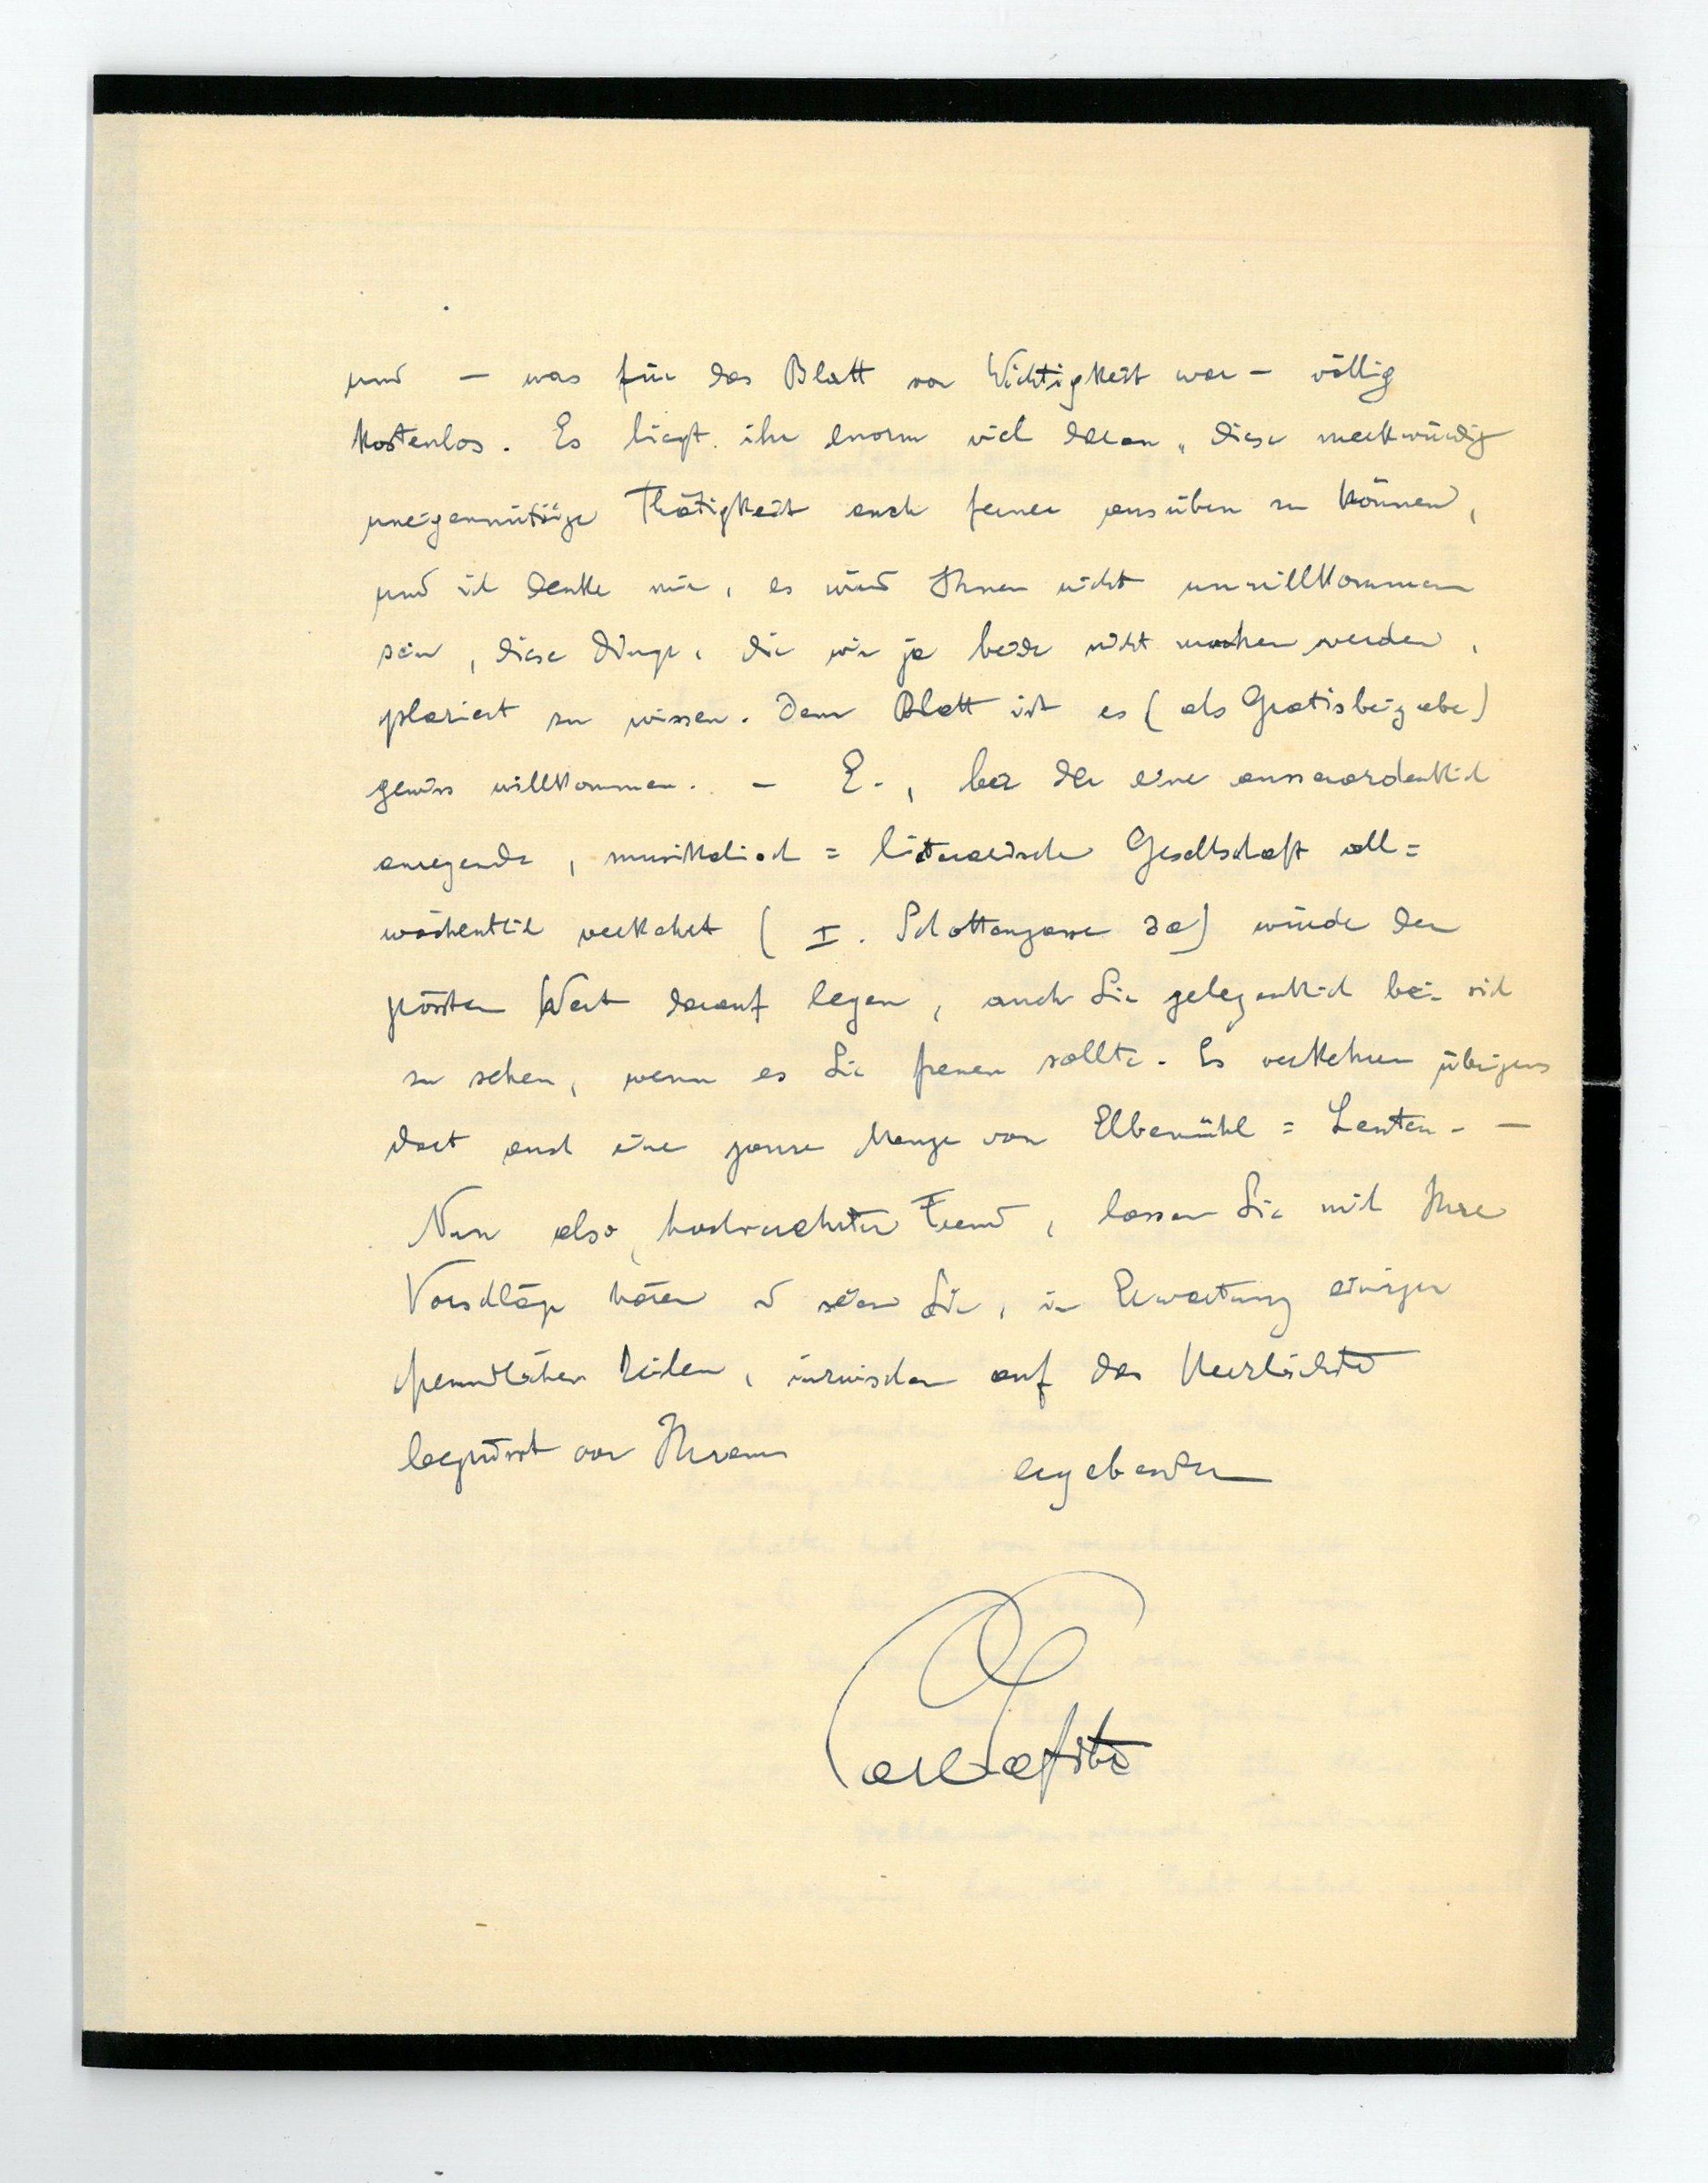 und – was für das Blatt von Wichtigkeit war – völlig
kostenlos. Es liegt ihr enorm viel daran, diese merkwürdig
uneigennützige Thätigkeit auch ferner ausüben zu können,
und ich denke mir, es wird Ihnen nicht unwillkommen
sein, diese Dinge, die wir ja beide nicht machen werden,
placiert zu wissen. Dem Blatt ist es (als Gratisbeigabe)
gewiss willkommen. – E., bei der eine ausserordentlich
anregende, musikalisch = literarische Gesellschaft all=
wöchentlich verkehrt (I. Schottengasse 3a) würde den
grössten Wert darauf legen, auch Sie gelegentlich bei sich
zu sehen, wenn es Sie freuen sollte. Es verkehren übrigens
dort auch eine ganze Menge von Elbemühl = Leuten. –
Nun also, hochverehrter Freund, lassen Sie mich Ihre
Vorschläge hören u seien Sie, in Erwartung einiger
freundlicher Zeilen, inzwischen auf das Herzlichste
begrüsst von Ihrem ergebensten
Carl Lafite